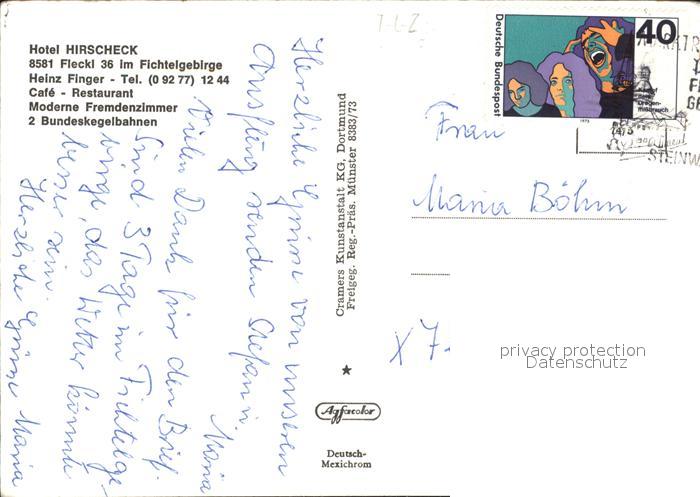 Hotel HIRSCHECK
8581 Fleckl 36 im Fichtelgebirge
Heinz Finger - Tel. (0 92 77) 12 44
Café - Restaurant
Moderne Fremdenzimmer
2 Bundeskegelbahnen
Herzliche Grüsse von unserem
Ausflug senden Stefan u.
Maria
Vielen Dank für den Brief.
Sind 3 Tage im Fichtelge-
birge, das Wetter könnte
besser sein.
Herzliche Grüsse Maria
Cramers Kunstanstalt KG, Dortmund
Freigeg. Reg.-Präs. Münster 8383/73
Agfacolor
Deutsch-
Mexichrom
7-1-2
Deutsche Bundespost
40
Kampf
dem
Drogen-
missbrauch
1975
STEINW
Frau
Maria Böhm
x 7.-
privacy protection
Datenschutz